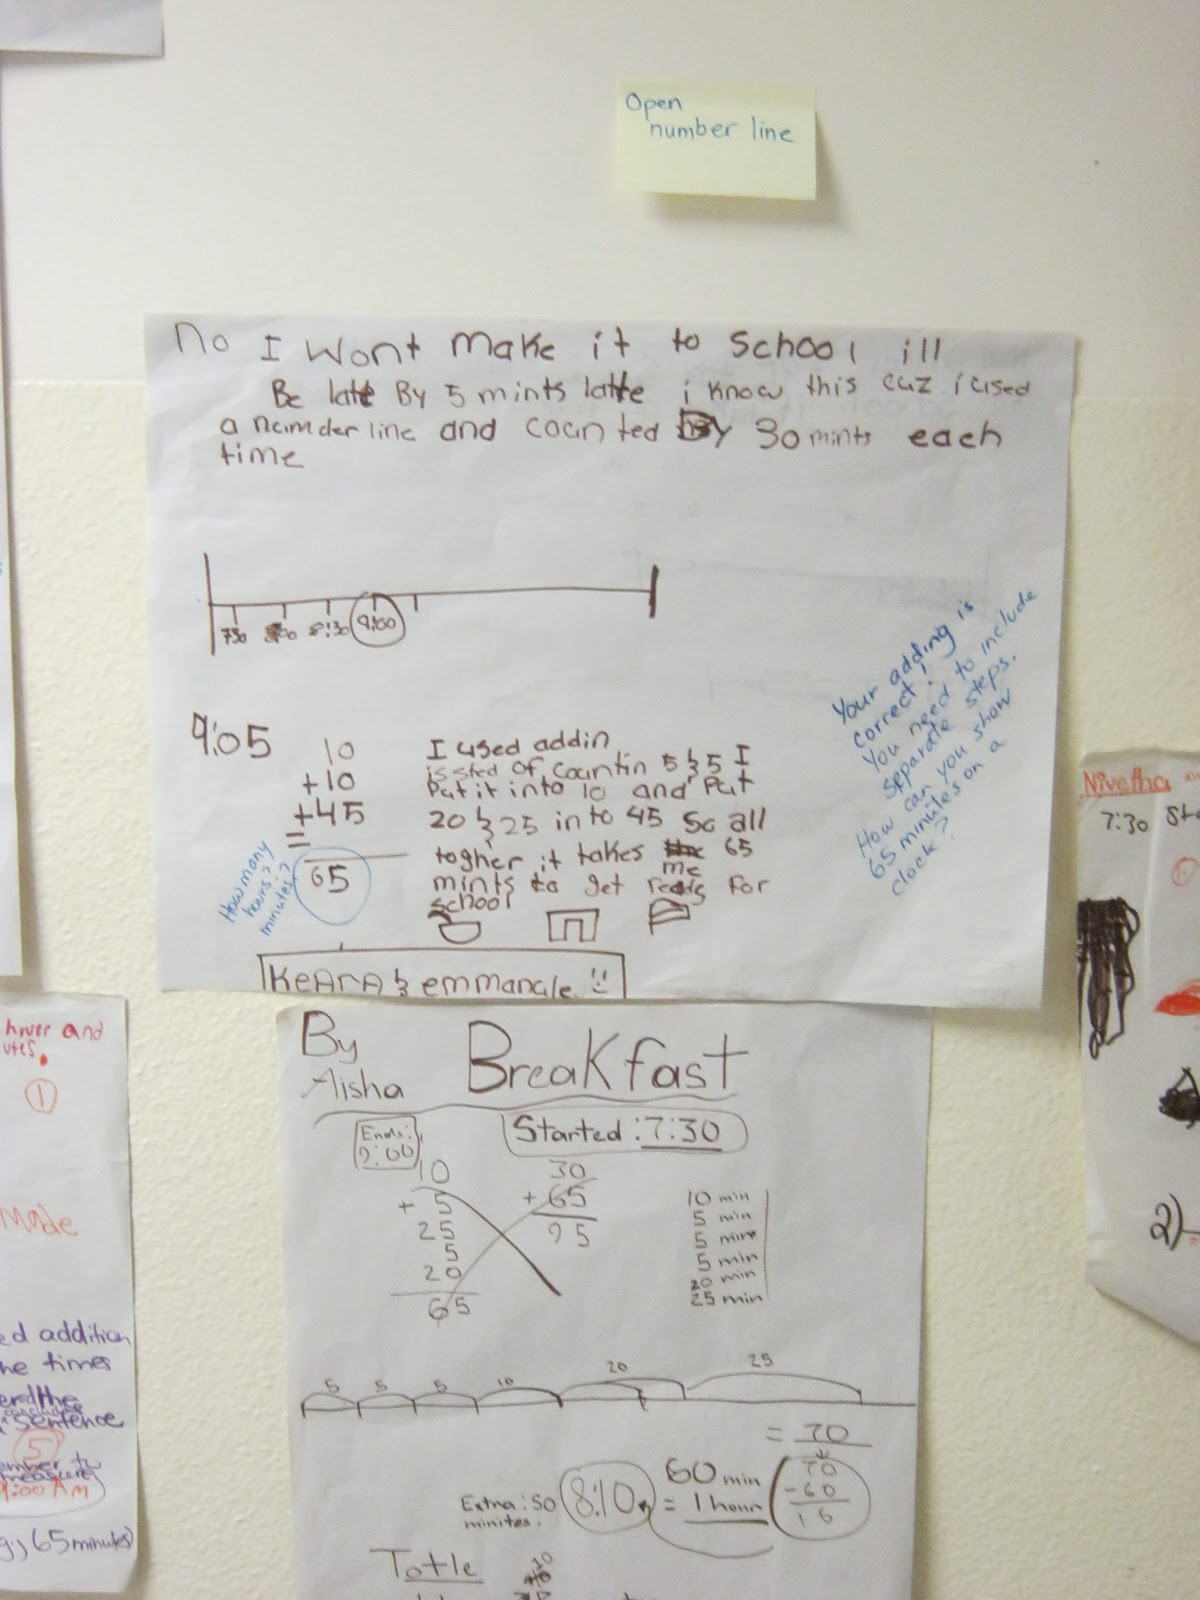 Open
number line
No I Wont Make it to School ill
Be late By 5 mints latte i know this cuz i used
a namder line and counted By 30 mints each
time
730 8:00 8:30 9:00
9:05
10
+10
+45
=
65
How many
hours?
minutes?
I used addin
issted of countin 5 & 5 I
Put it into 10 and Put
20 & 25 in to 45 So all
togher it takes me 65
mints to get ready for
school
Your adding is
correct!
You need to include
separate steps.
How can you show
65 minutes on a
clock?
KeARA & emmanale
By
Aisha
Breakfast
Ends:
9:00
Started: 7:30
10
+ 5
25
5
20
65
30
+ 65
95
10 min
5 min
5 min
5 min
20 min
25 min
5 5 5 10 20 25
= 70
Extra: 50
minites.
8:10
60 min
= 1 hour
70
- 60
10
Totle
Nivetha
7:30 Sta
1.
2)
hour and
utes.
1
Made
ed addition
he times
ered the
sentence
5
ember to
measure
9:00 AM
g., 65 minutes)